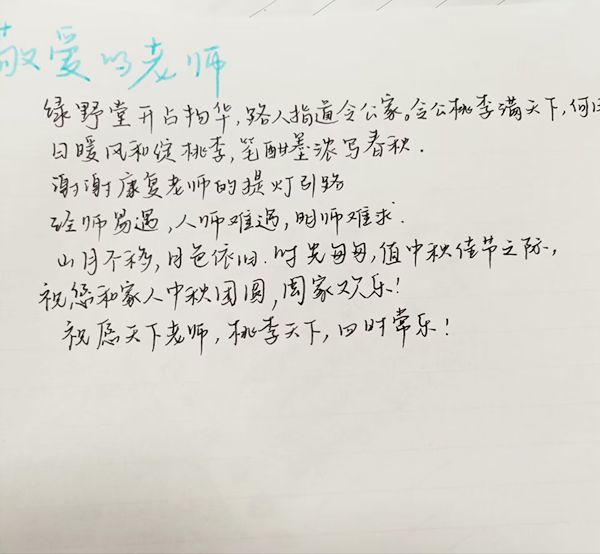 敬爱的老师
绿野堂开占物华，路人指道令公家。令公桃李满天下，何
日暖风和绽桃李，笔酣墨浓写春秋.
谢谢康复老师的提灯引路
经师易遇，人师难遇，明师难求.
山月不移，月色依旧.时光匆匆，值中秋佳节之际，
祝您和家人中秋团圆，阖家欢乐！
祝愿天下老师，桃李天下，四时常乐！